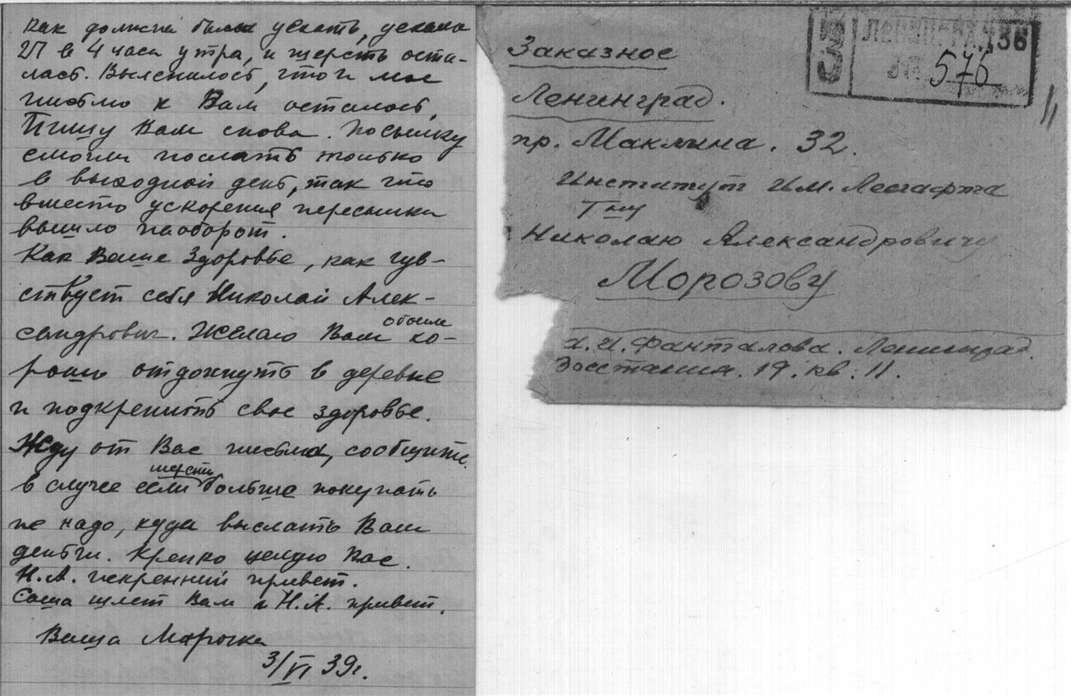 как должна была уехать, уехала
27 в 4 часа утра, и шерсть оста-
лась. Выяснилось, что и мое
письмо к Вам осталось,
Пишу Вам снова. Посылку
смогли послать только
в выходной день, так что
вместо ускорения пересылки
вышло наоборот.
Как Ваше здоровье, как чув-
ствует себя Николай Алек-
сандрович. Желаю Вам обоим хо-
рошо отдохнуть в деревне
и подкрепить свое здоровье.
Жду от Вас письма, сообщите
в случае если шерсти больше покупать
не надо, куда выслать Вам
деньги. Крепко целую Вас.
Н.А. искренний привет.
Саша шлет Вам и Н.А. привет.
Ваша Марочка
3/VI 39г.
Заказное
Ленинград.
пр. Маклина. 32.
Институт Им. Лесгафта
Николаю Александровичу
Морозову
Фанталова. Ленинград.
Восстания. 19. кв. 11.
ЛЕНИНГРАД 36
576